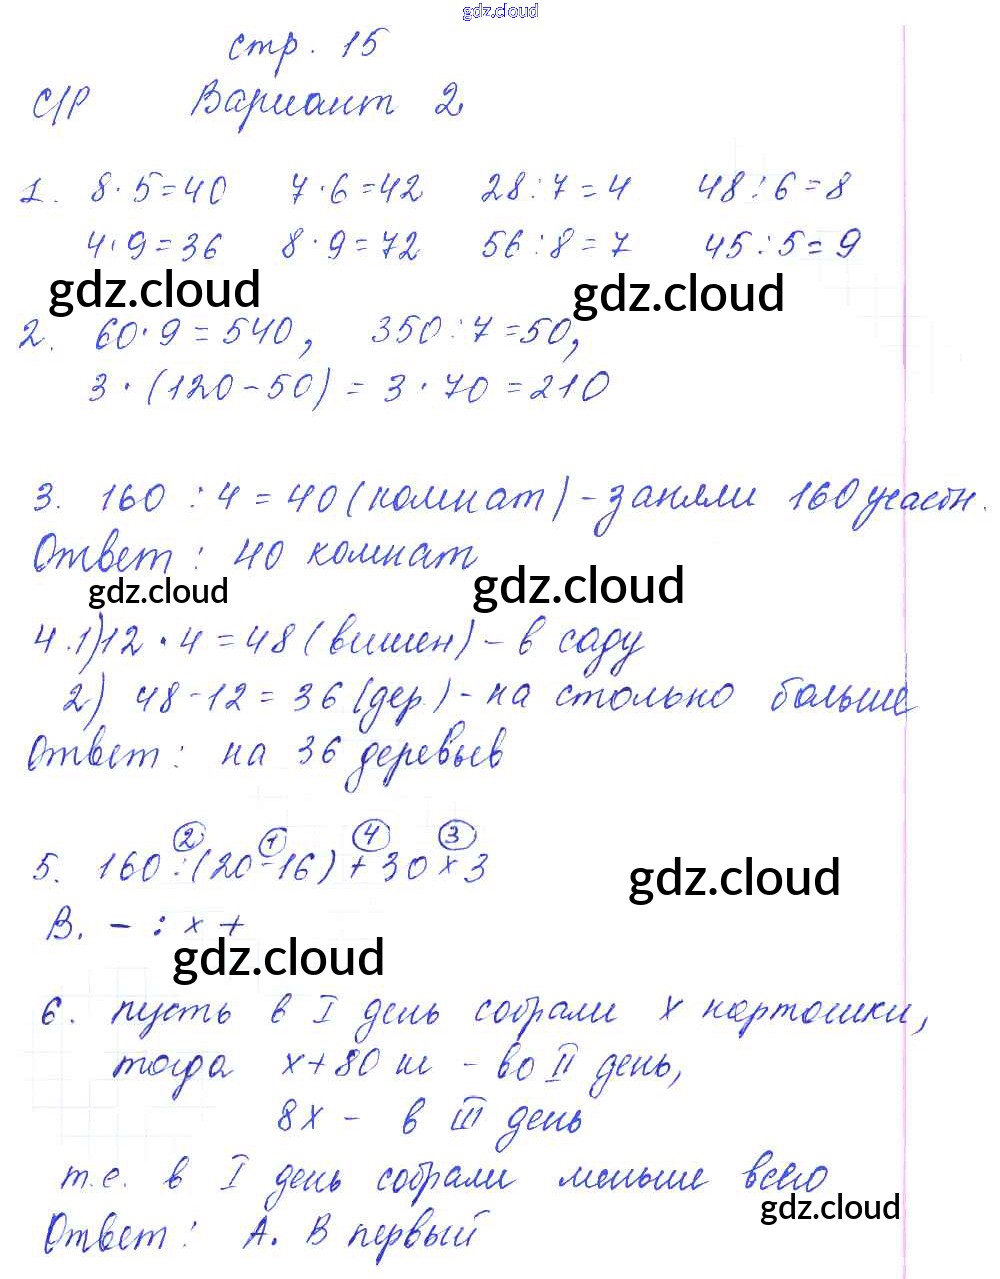 gdz.cloud
стр. 15
С/Р Вариант 2
1. 8·5=40 7·6=42 28:7=4 48:6=8
4·9=36 8·9=72 56:8=7 45:5=9
gdz.cloud gdz.cloud
2. 60·9=540, 350:7=50,
3·(120-50)=3·70=210
3. 160:4=40(комнат)-заняли 160 участн.
Ответ: 40 комнат
gdz.cloud gdz.cloud
4.1)12·4=48(вишен)-в саду
2) 48-12=36(дер.)-на столько больше
Ответ: на 36 деревьев
2 1 4 3
5. 160:(20-16)+30×3
gdz.cloud
В. - : × +
gdz.cloud
6. пусть в I день собрали х картошки,
тогда х+80 ш - во II день,
8х - в III день
т.е. в I день собрали меньше всего
gdz.cloud
Ответ: А. В первый